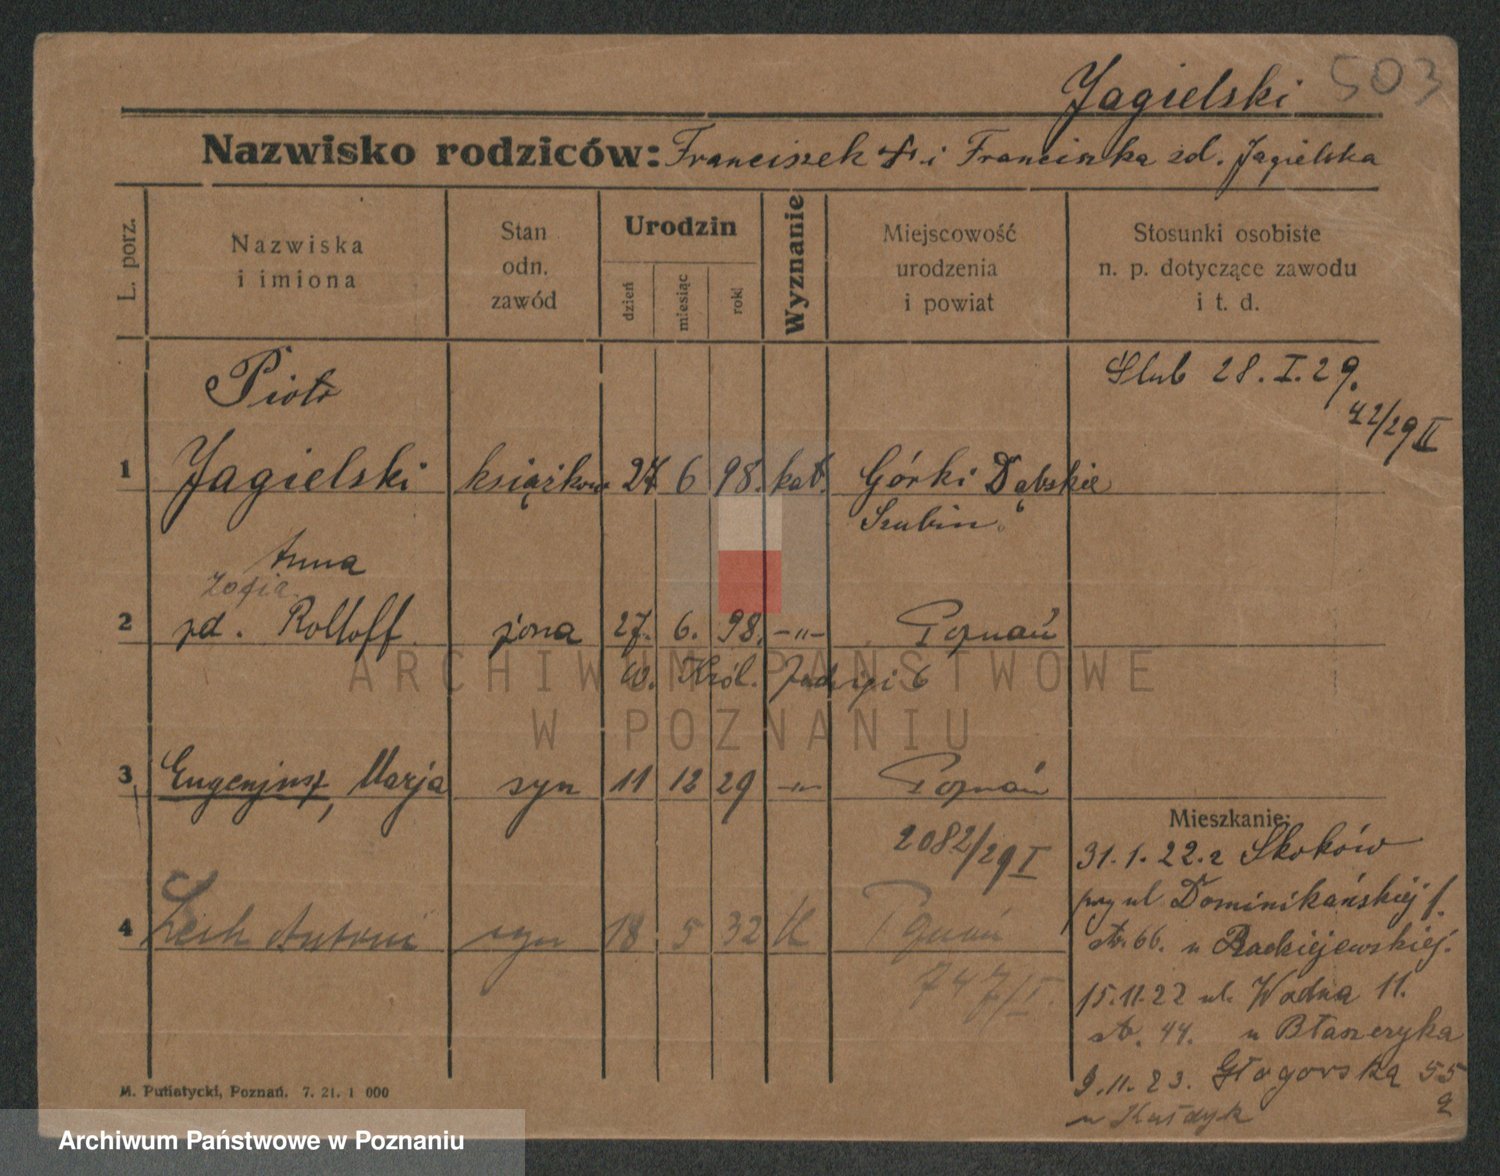 Jagielski 503
Nazwisko rodziców: Franciszek † i Franciszka zd. Jagielska
L. porz.
Nazwiska
i imiona
Stan
odn.
zawód
Urodzin
dzień
miesiąc
rok
Wyznanie
Miejscowość
urodzenia
i powiat
Stosunki osobiste
n. p. dotyczące zawodu
i t. d.
Piotr
Ślub 28. I. 29.
42/29 II
1 Jagielski książkow 27 6 98. kat. Górki Dąbskie
Szubin.
Anna
Zofia
2 zd. Roltoff żona 27. 6. 98. -"- Poznań
w. Król. Jadwigi 6
3 Eugenjusz, Marja syn 11 12 29 -"- Poznań
2082/29 I
4 Lech Antoni syn 18 5 32 k Poznań
747/I.
Mieszkanie:
31.1.22. z Skoków
przy ul Dominikańskiej 1.
str. 66. u Radziejewskiej.
15.11.22 ul. Wodna 11.
str. 44. u Błaszczyka
9.11.23. Głogowska 55
u Kałdyk
M. Putiatycki, Poznań. 7. 21. 1 000
ARCHIWUM PAŃSTWOWE
W POZNANIU
Archiwum Państwowe w Poznaniu